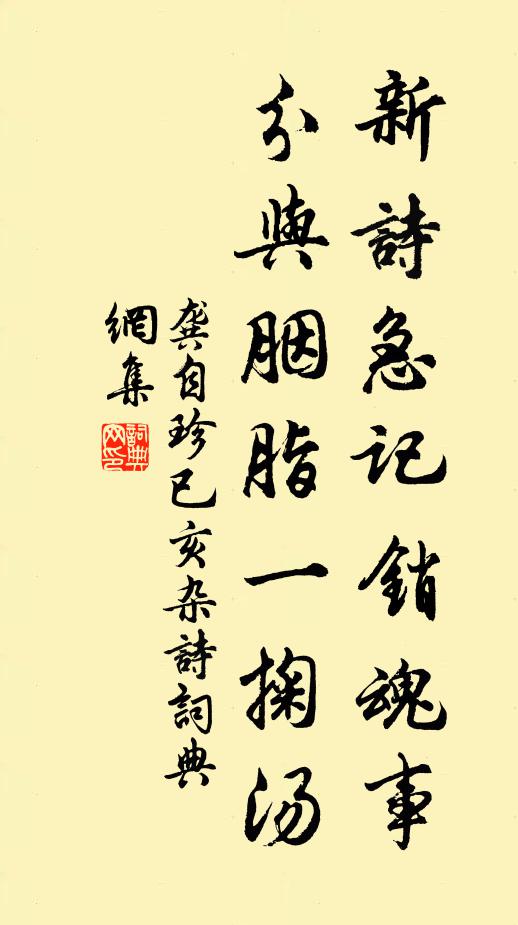 新詩急記銷魂事
分與胭脂一掬湯
龔自珍己亥杂詩詞典
網集
詞典網印